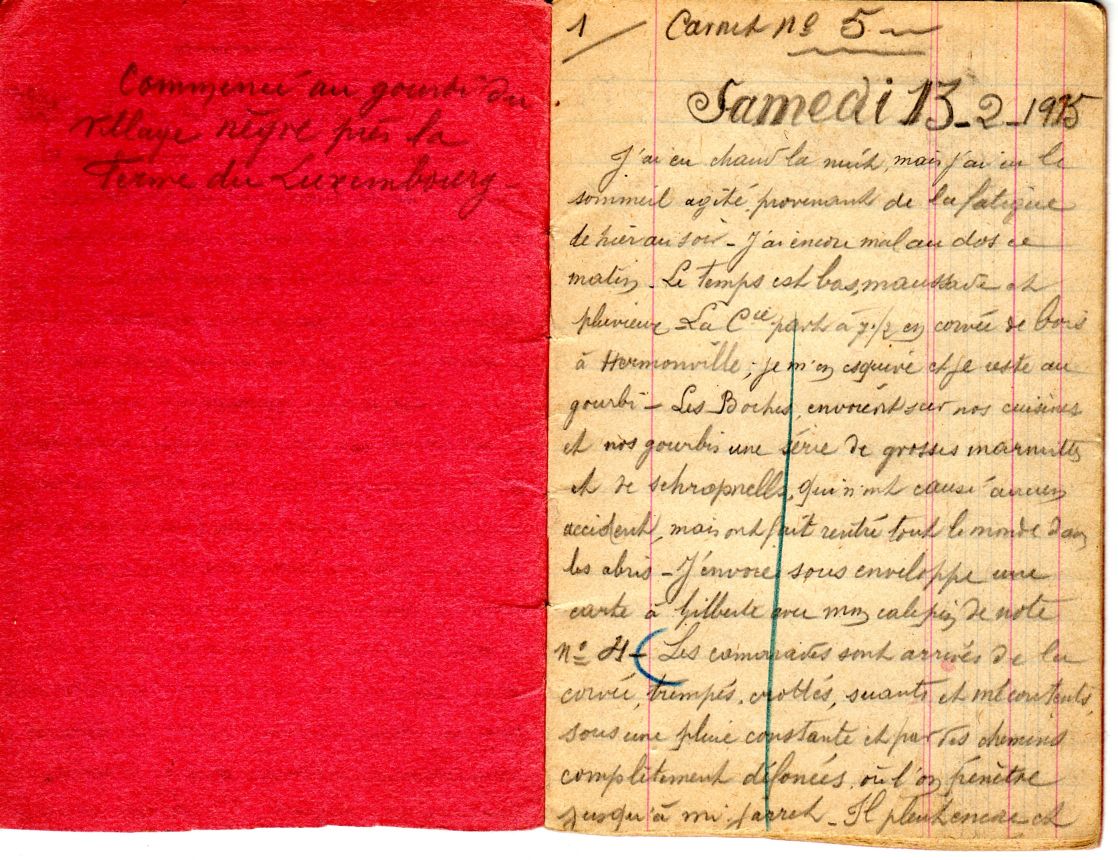 Commencé au gourbi du
village nègre près la
Ferme du Luxembourg -
1
Carnet No 5
Samedi 13-2-1915
J'ai eu chaud la nuit, mais j'ai eu le
sommeil agité, provenant de la fatigue
de hier au soir - J'ai encore mal au dos ce
matin - Le temps est bas, maussade et
pluvieux - La Cie part à 7.1/2 en corvée de bois
à Hermonville; je m'en esquive et je reste au
gourbi - Les Boches, envoient sur nos cuisines
et nos gourbis une série de grosses marmittes
et de schrapnells, qui n'ont causé aucun
accident, mais ont fait rentré tout le monde dans
les abris - J'envoie sous enveloppe une
carte à Gilberte avec mon calepin de note
No 4 - Les camarades sont arrivés de la
corvée, trempés, crottés, suants et mécontents,
sous une pluie constante et par des chemins
complètement défoncés, où l'on pénètre
jusqu'à mi-jarret - Il pleut encore et